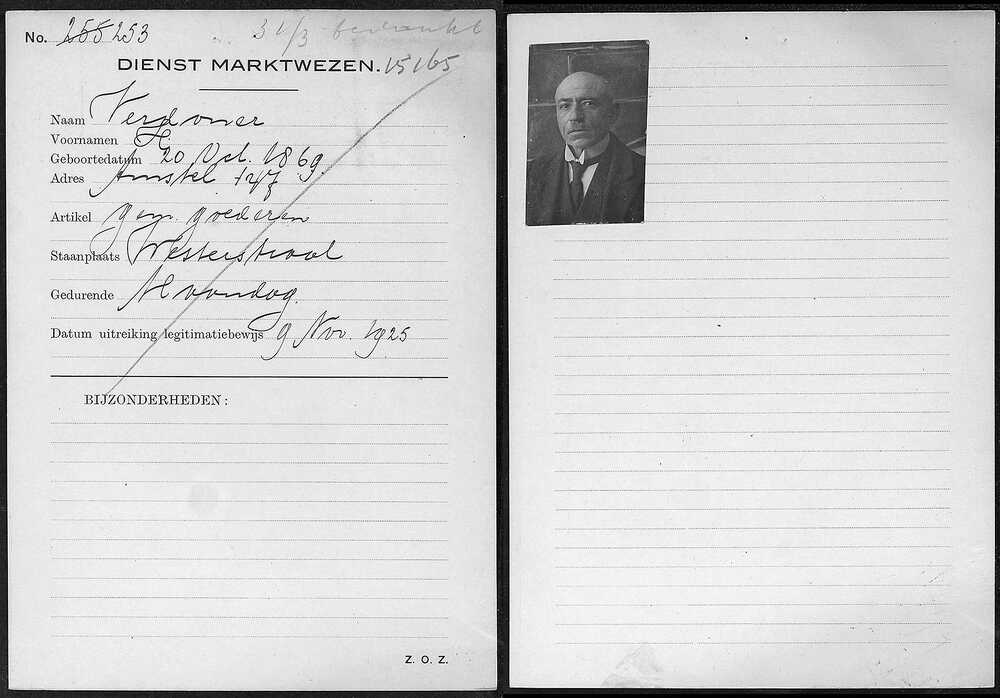 No. 255 253
31/3 bedankt
DIENST MARKTWEZEN. 15165
Naam Verdoner
Voornamen H.
Geboortedatum 20 Oct. 1869.
Adres Amstel 47
Artikel gem. goederen
Staanplaats Westerstraat
Gedurende Maandag.
Datum uitreiking legitimatiebewijs 9 Nov. 1925
BIJZONDERHEDEN:
Z. O. Z.